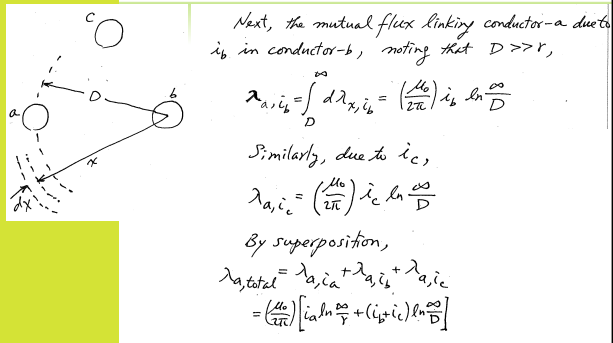 C
Next, the mutual flux linking conductor-a due to
i_b in conductor-b, noting that D >> r,
D
b
a
λ_{a,i_b} = ∫_D^∞ dλ_{x,i_b} = (μ_0/2π) i_b ln ∞/D
x
dx
Similarly, due to i_c,
λ_{a,i_c} = (μ_0/2π) i_c ln ∞/D
By superposition,
λ_{a,total} = λ_{a,i_a} + λ_{a,i_b} + λ_{a,i_c}
= (μ_0/2π) [i_a ln ∞/r + (i_b + i_c) ln ∞/D]